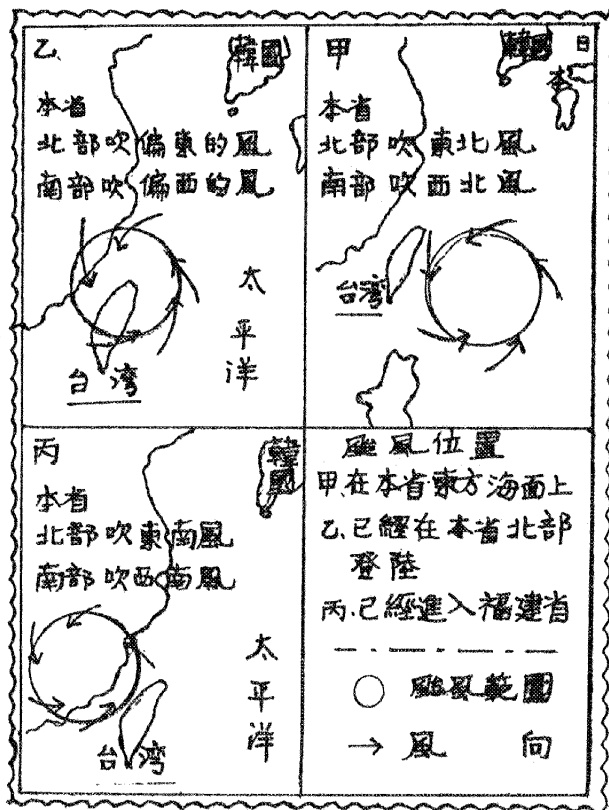 乙
韓國
本省
北部吹偏東的風
南部吹偏西的風
太平洋
台湾
甲
韓國
日本
本省
北部吹東北風
南部吹西北風
台湾
丙
韓國
本省
北部吹東南風
南部吹西南風
太平洋
台湾
颱風位置
甲.在本省東方海面上
乙.已經在本省北部
登陸
丙.已經進入福建省
颱風範圍
風向